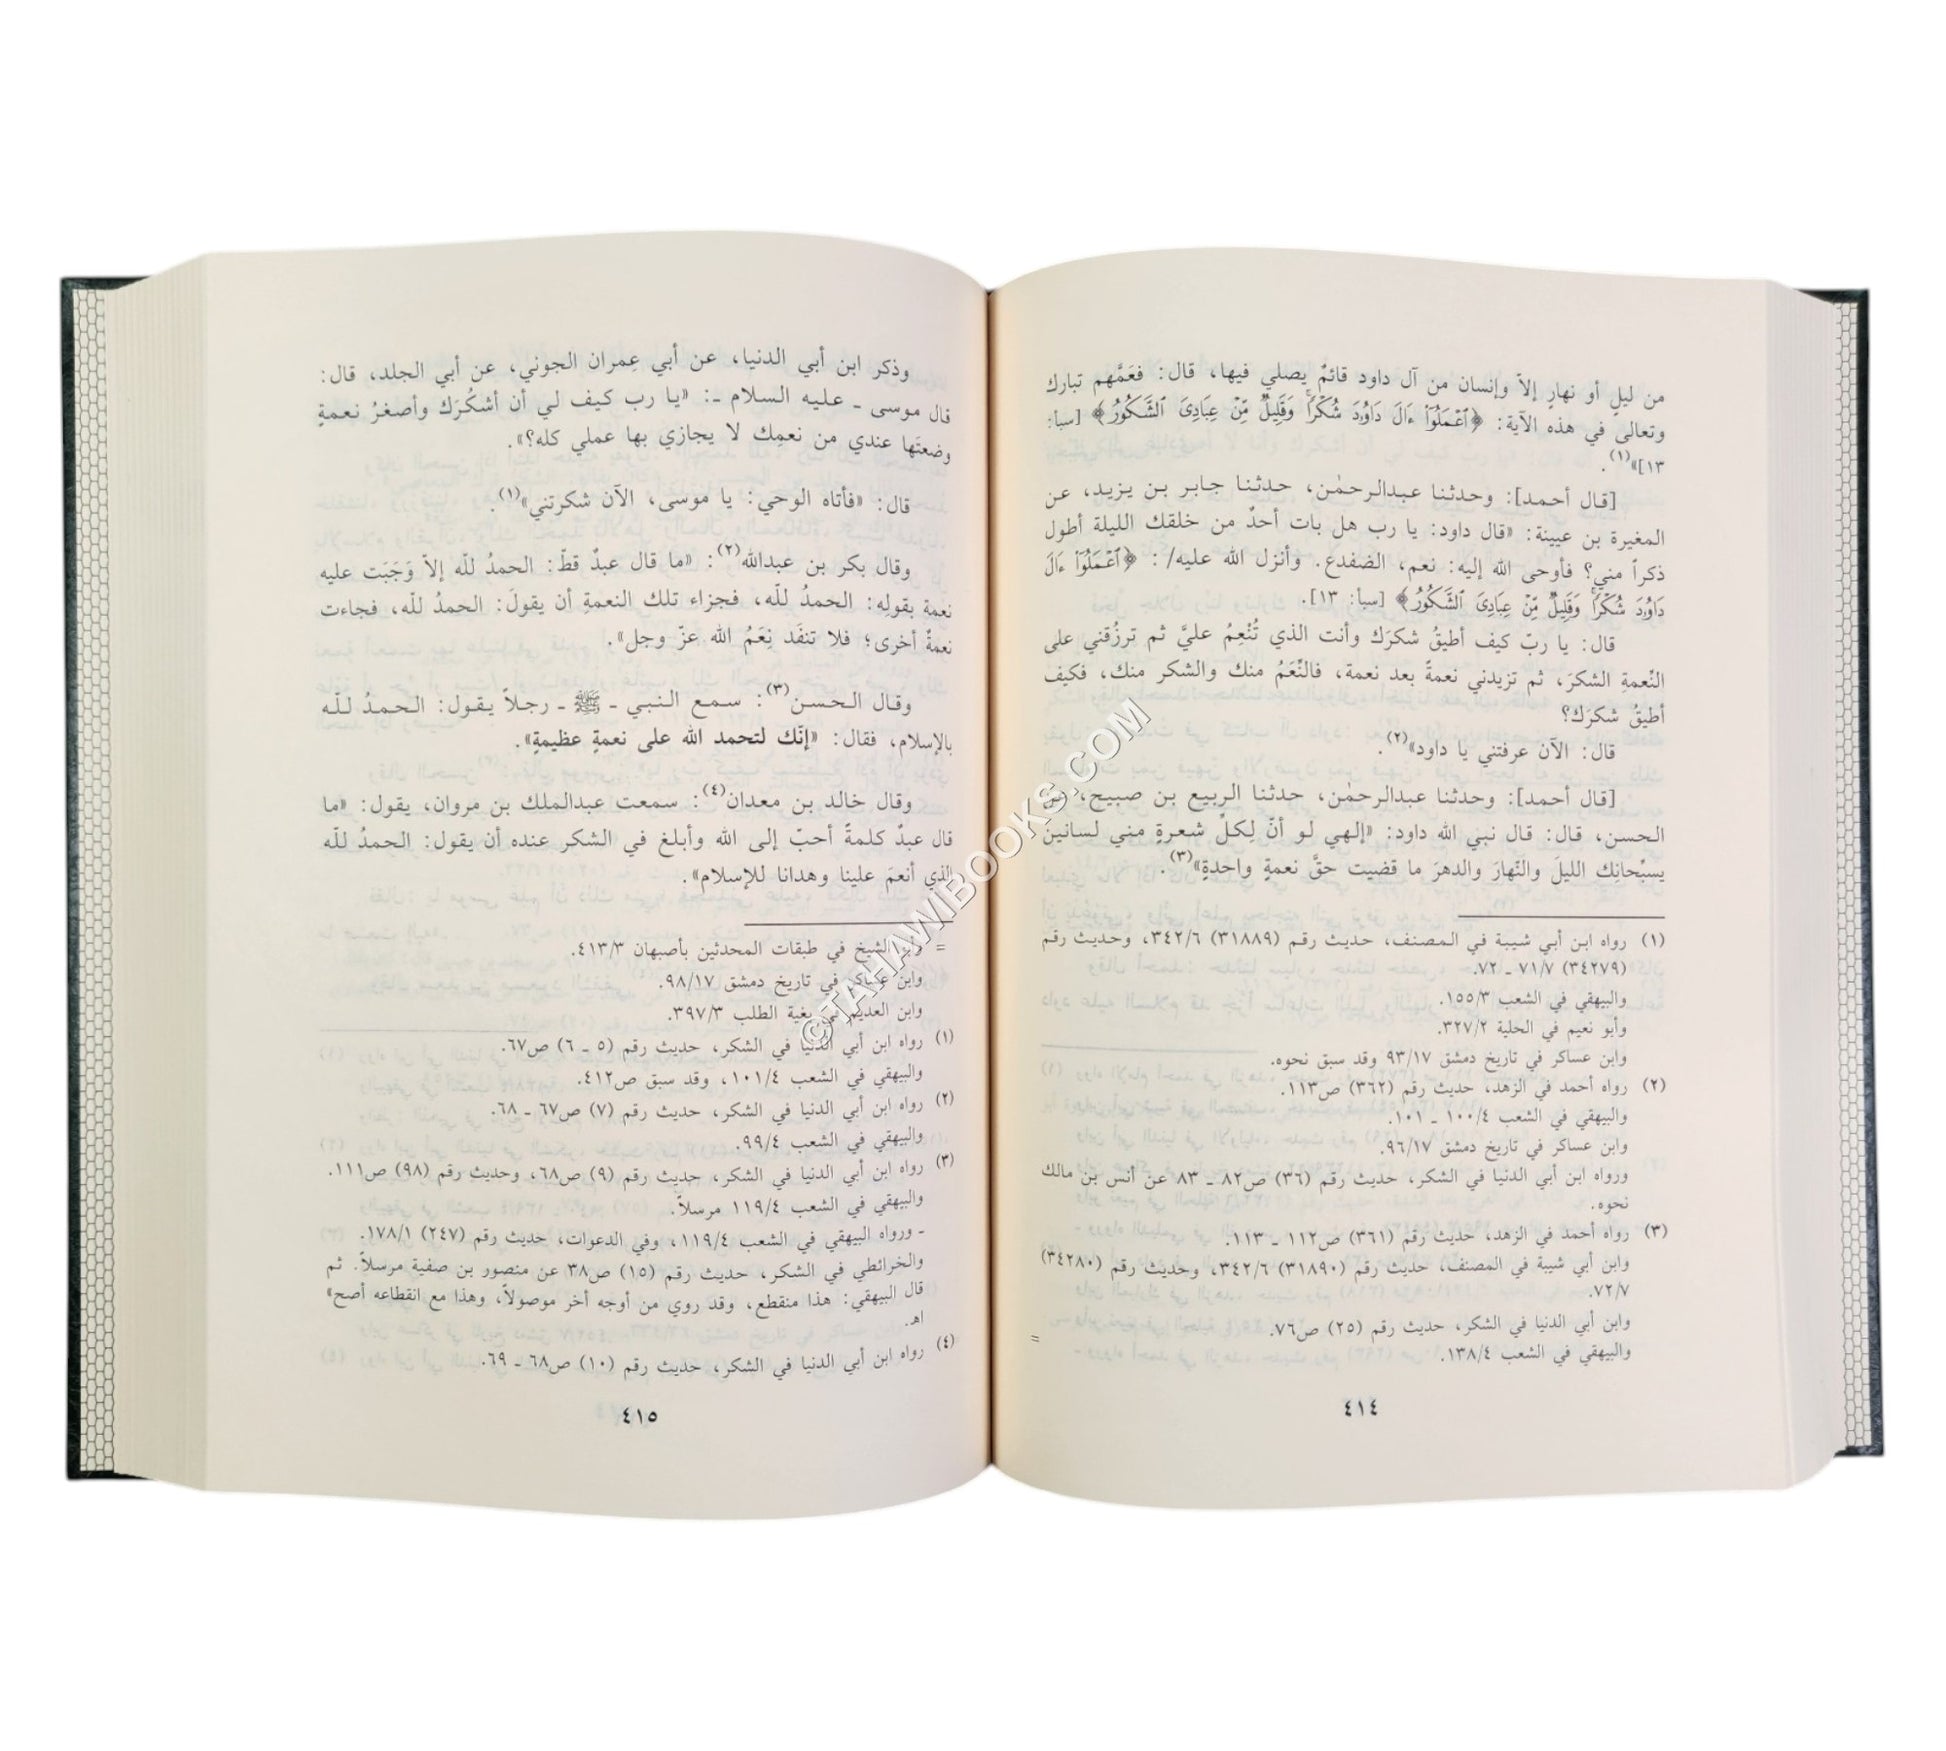 من ليلٍ أو نهارٍ إلاّ وإنسان من آل داود قائمٌ يصلي فيها، قال: فعَمَّهم تبارك
وتعالى في هذه الآية: ﴿ٱعۡمَلُوٓاْ ءَالَ دَاوُۥدَ شُكۡرٗاۚ وَقَلِيلٞ مِّنۡ عِبَادِيَ ٱلشَّكُورُ﴾ [سبأ:
١٣]»(١).
[قال أحمد]: وحدثنا عبدالرحمٰن، حدثنا جابر بن يزيد، عن
المغيرة بن عيينة: «قال داود: يا رب هل بات أحدٌ من خلقك الليلة أطول
ذكراً مني؟ فأوحى الله إليه: نعم، الضفدع. وأنزل الله عليه/: ﴿ٱعۡمَلُوٓاْ ءَالَ
دَاوُۥدَ شُكۡرٗاۚ وَقَلِيلٞ مِّنۡ عِبَادِيَ ٱلشَّكُورُ﴾ [سبأ: ١٣].
قال: يا ربّ كيف أطيقُ شكرَك وأنت الذي تُنْعِمُ عليَّ ثم ترزُقني على
النِّعمةِ الشكرَ، ثم تزيدني نعمةً بعد نعمة، فالنِّعَمُ منك والشكر منك، فكيف
أطيقُ شكرَك؟
قال: الآن عرفتني يا داود»(٢).
[قال أحمد]: وحدثنا عبدالرحمٰن، حدثنا الربيع بن صبيح، عن
الحسن، قال: قال نبي الله داود: «إلهي لو أنّ لِكلِّ شعرةٍ مني لسانين
يسبِّحانِك الليلَ والنّهارَ والدهرَ ما قضيت حقَّ نعمةٍ واحدةٍ»(٣).
(١) رواه ابن أبي شيبة في المصنف، حديث رقم (٣١٨٨٩) ٣٤٢/٦، وحديث رقم
(٣٤٢٧٩) ٧١/٧ ـ ٧٢.
والبيهقي في الشعب ١٥٥/٣.
وأبو نعيم في الحلية ٣٢٧/٢.
وابن عساكر في تاريخ دمشق ٩٣/١٧ وقد سبق نحوه.
(٢) رواه أحمد في الزهد، حديث رقم (٣٦٢) ص١١٣.
والبيهقي في الشعب ١٠٠/٤ ـ ١٠١.
وابن عساكر في تاريخ دمشق ٩٦/١٧.
ورواه ابن أبي الدنيا في الشكر، حديث رقم (٣٦) ص٨٢ ـ ٨٣ عن أنس بن مالك
نحوه.
(٣) رواه أحمد في الزهد، حديث رقم (٣٦١) ص١١٢ ـ ١١٣.
وابن أبي شيبة في المصنف، حديث رقم (٣١٨٩٠) ٣٤٢/٦، وحديث رقم (٣٤٢٨٠)
٧٢/٧.
وابن أبي الدنيا في الشكر، حديث رقم (٢٥) ص٧٦.
والبيهقي في الشعب ١٣٨/٤. =
٤١٤
وذكر ابن أبي الدنيا، عن أبي عِمران الجوني، عن أبي الجلد، قال:
قال موسى ـ عليه السلام ـ: «يا رب كيف لي أن أشكُرَك وأصغرُ نعمةٍ
وضعتَها عندي من نعمِك لا يجازي بها عملي كله؟».
قال: «فأتاه الوحي: يا موسى، الآن شكرتني»(١).
وقال بكر بن عبدالله(٢): «ما قال عبدٌ قطّ: الحمدُ للّه إلاّ وَجَبَت عليه
نعمة بقولِه: الحمدُ للّه، فجزاء تلك النعمةِ أن يقولَ: الحمدُ للّه، فجاءت
نعمةٌ أخرى؛ فلا تنفَد نِعَمُ الله عزّ وجل».
وقال الحسن(٣): سمع النبي ـ ﷺ ـ رجلاً يقول: الحمدُ للّه
بالإسلام، فقال: «إنّك لتحمد الله على نعمةٍ عظيمةٍ».
وقال خالد بن معدان(٤): سمعت عبدالملك بن مروان، يقول: «ما
قال عبدٌ كلمةً أحبّ إلى الله وأبلغ في الشكر عنده أن يقول: الحمدُ للّه
الذي أنعمَ علينا وهدانا للإسلام».
= وأبو الشيخ في طبقات المحدثين بأصبهان ٤١٣/٣.
وابن عساكر في تاريخ دمشق ٩٨/١٧.
وابن العديم في بغية الطلب ٣٩٧/٣.
(١) رواه ابن أبي الدنيا في الشكر، حديث رقم (٥ ـ ٦) ص٦٧.
والبيهقي في الشعب ١٠١/٤، وقد سبق ص٤١٢.
(٢) رواه ابن أبي الدنيا في الشكر، حديث رقم (٧) ص٦٧ ـ ٦٨.
والبيهقي في الشعب ٩٩/٤.
(٣) رواه ابن أبي الدنيا في الشكر، حديث رقم (٩) ص٦٨، وحديث رقم (٩٨) ص١١١.
والبيهقي في الشعب ١١٩/٤ مرسلاً.
- ورواه البيهقي في الشعب ١١٩/٤، وفي الدعوات، حديث رقم (٢٤٧) ١٧٨/١.
والخرائطي في الشكر، حديث رقم (١٥) ص٣٨ عن منصور بن صفية مرسلاً. ثم
قال البيهقي: هذا منقطع، وقد روي من أوجه أخر موصولاً، وهذا مع انقطاعه أصح»
اهـ.
(٤) رواه ابن أبي الدنيا في الشكر، حديث رقم (١٠) ص٦٨ ـ ٦٩.
٤١٥
©TAHAWIBOOKS.COM